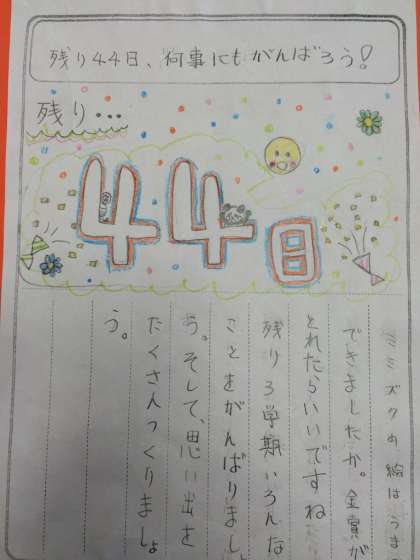 残り44日、何事にもがんばろう!
残り...
44日
ミミズクの絵はうま
できましたか。金賞が
とれたらいいですね
残り3学期いろんな
ことをがんばりまし
う。そして、思い出を
たくさんつくりましょ
う。